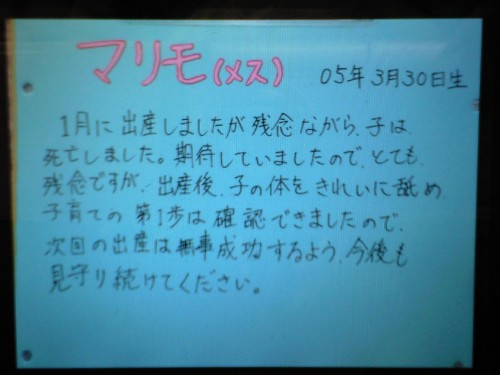 マリモ(メス) 05年3月30日生
1月に出産しましたが残念ながら、子は
死亡しました。期待していましたので、とても
残念ですが、出産後、子の体をきれいに舐め
子育ての第1歩は確認できましたので、
次回の出産は無事成功するよう、今後も
見守り続けてください。